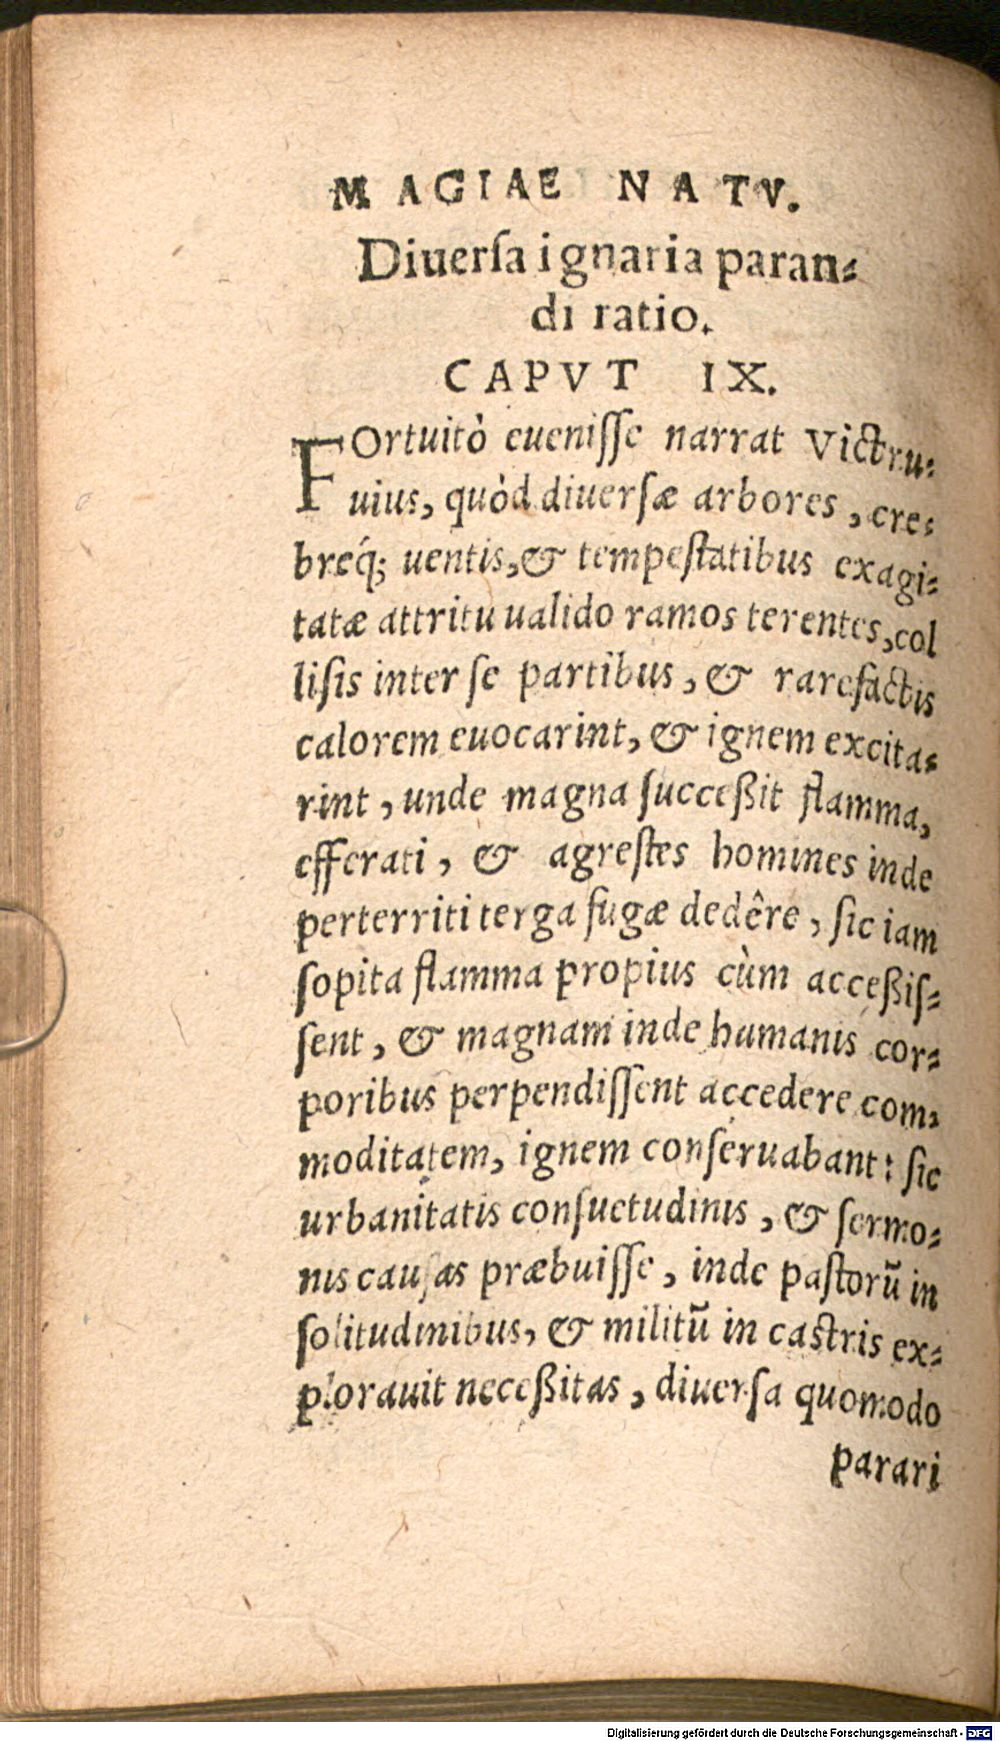 MAGIAE NATV.
Diuerſa ignaria paran⸗
di ratio.
CAPVT IX.
FOrtuitò eueniſſe narrat Victru⸗
uius, quòd diuerſæ arbores, cre⸗
breq́; uentis, & tempeſtatibus exagi⸗
tatæ attritu ualido ramos terentes, col
liſis inter ſe partibus, & rarefactis
calorem euocarint, & ignem excita⸗
rint, unde magna ſucceßit flamma,
efferati, & agreſtes homines inde
perterriti terga fugæ dedêre, ſic iam
ſopita flamma propius cùm acceßiſ⸗
ſent, & magnam inde humanis cor⸗
poribus perpendiſſent accedere com⸗
moditatem, ignem conſeruabant: ſic
urbanitatis conſuetudinis, & ſermo⸗
nis cauſas præbuiſſe, inde paſtorũ in
ſolitudinibus, & militũ in caſtris ex⸗
plorauit neceßitas, diuerſa quomodo
parari
Digitalisierung gefördert durch die Deutsche Forschungsgemeinschaft - DFG